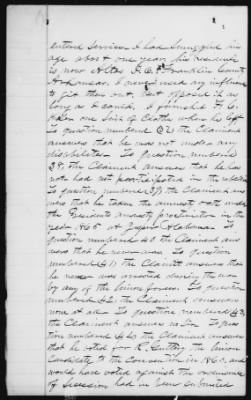 entered service. I had
age about one year, his residence
is now Altus P.O. Franklin County
Arkansas. I never used any influence
to join them out, but opposed it as
long as I could. I furnished
him one suit of Clothes when he left
To question numbered 32 the Claimant
answers that he was not under any
disabilities. To question numbered
38, the Claimant answers that he has
not participated in the
To question number 39 the Claimant ans
wers that he took the amnesty oath under
the Presidents amnesty proclamation in the
year 1865 at Jasper Alabama. To
question numbered 40 the Claimant ans
wers that he never was. To question
numbered 41 the Claimant answers that
he never was arrested during the war
by any of the Union forces. To question
numbered 42 the Claimant answers
none at all. To question numbered 43,
the Claimant answers no Sir. To ques
tion numbered 44 the Claimant answers
that he voted for the Union
Candidate to the Convention in 1860, and
would have voted against the ordinance
of Secession had it been submitted